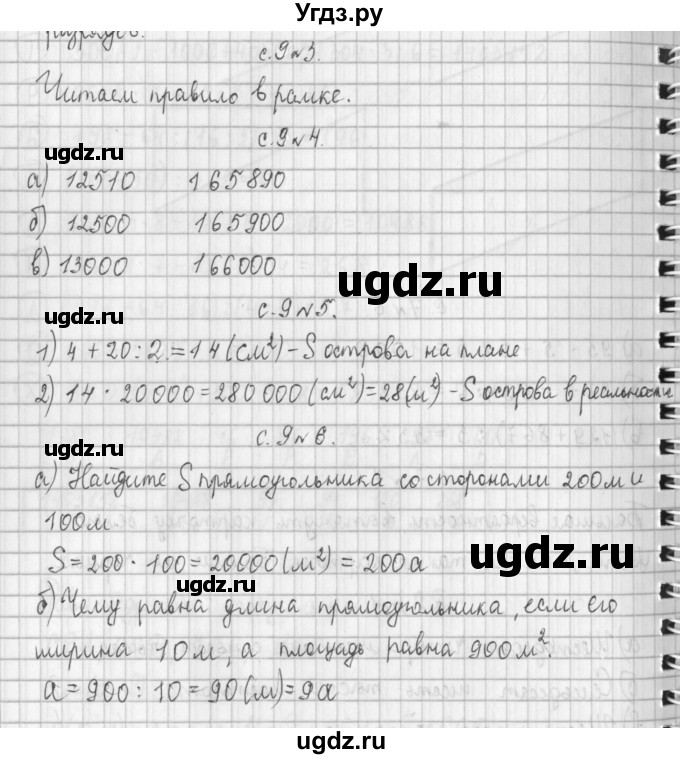 Угдз.ру
разрядов.
с.9 №3.
Читаем правило в рамке.
с.9 №4.
ugdz.ru
а) 12510 165890
б) 12500 165900
в) 13000 166000
ugdz.ru
с.9 №5.
ugdz.ru
1) 4 + 20 : 2 = 14 (см²) - S острова на плане
2) 14 · 20000 = 280000 (см²) = 28 (м²) - S острова в реальности
ugdz.ru
с.9 №6.
а) Найдите S прямоугольника со сторонами 200м и
100м
ugdz.ru
S = 200 · 100 = 20000 (м²) = 200а
ugdz.ru
б) Чему равна длина прямоугольника, если его
ширина 10м, а площадь равна 900м².
а = 900 : 10 = 90 (м) = 9а
ugdz.ru